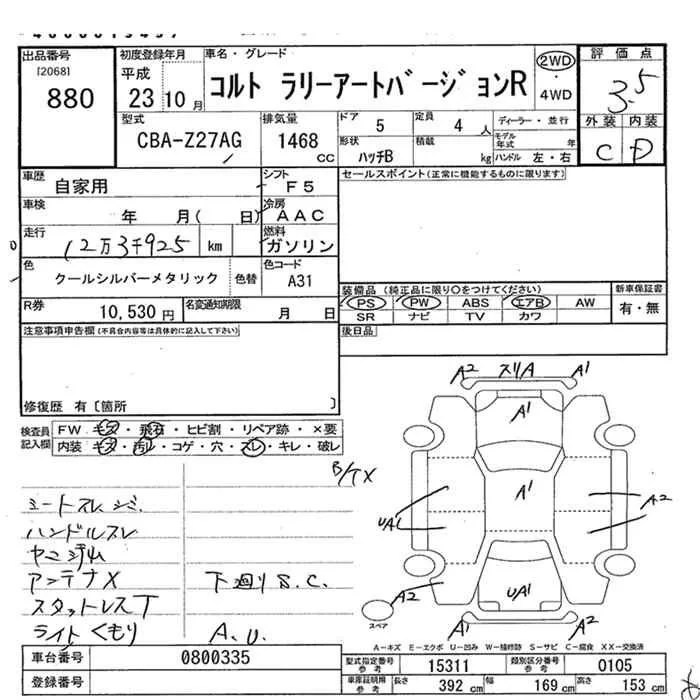 出品番号
[2068]
880
初度登録年月
平成
23 10 月
車名・グレード
コルト ラリーアートバージョンR
2WD
・
4WD
評価点
3.5
外装 内装
C D
型式
CBA-Z27AG
排気量
1468
cc
ドア
5
定員
4 人
ディーラー・並行
モデル年式 年
形状
ハッチB
積載
kg
ハンドル 左・右
車歴
自家用
シフト
F5
セールスポイント(正常に機能するものに限ります)
車検
年 月( 日)
冷房
AAC
走行
12万3千925 km
燃料
ガソリン
色
クールシルバーメタリック
色替
色コード
A31
装備品(純正品に限り○をつけてください)
PS PW ABS エアB AW
SR ナビ TV カワ
新車保証書
有・無
R券
10,530 円
名変通知期限
月 日
後日品
注意事項申告欄(不具合内容等は具体的に記入して下さい)
修復歴 有〔箇所 〕
検査員
記入欄
FW キズ・飛石・ヒビ割・リペア跡・×要
内装 キズ・汚れ・コゲ・穴・スレ・キレ・破レ
A2 スリA A1
A1
A1
UA1
A2
UA1
A2
A1 A1
スペア
シートスレ シミ
ハンドルスレ
アンテナX
下廻りS.C.
スタットレスT
ライトくもり
A.U.
A-キズ E-エクボ U-凹み W-補修跡 S-サビ C-腐食 XX-交換済
車台番号
0800335
型式指定番号
参考
15311
類別区分番号
参考
0105
登録番号
車庫証明用
参考
長さ
392 cm
幅
169 cm
高さ
153 cm